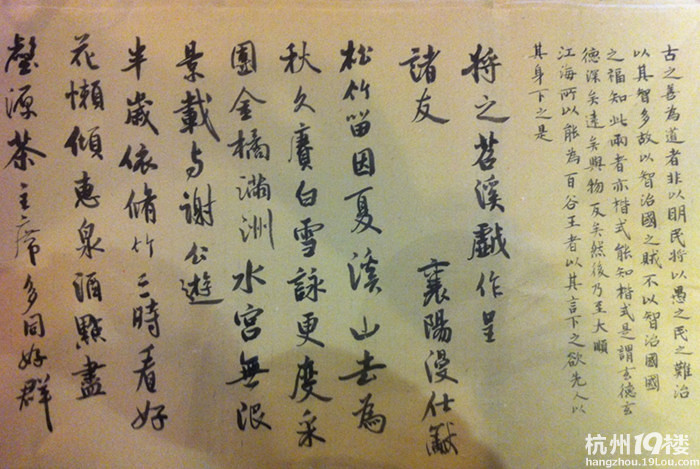 古之善為道者非以明民將以愚之民之難治
以其智多故以智治國之賊不以智治國國
之福知此兩者亦楷式能知楷式是謂玄德玄
德深矣遠矣與物反矣然後乃至大順
江海所以能為百谷王者以其言下之欲先人以
其身下之是
將之苕溪戲作呈
諸友 襄陽漫仕黻
松竹留因夏溪山去為
秋久賡白雪詠更度采
團金橘滿洲水宮無限
景載与謝公遊
半歲依脩竹三時看好
花懶傾惠泉酒點盡
壑源茶主席多同好群
杭州19楼
hangzhou.19Lou.com